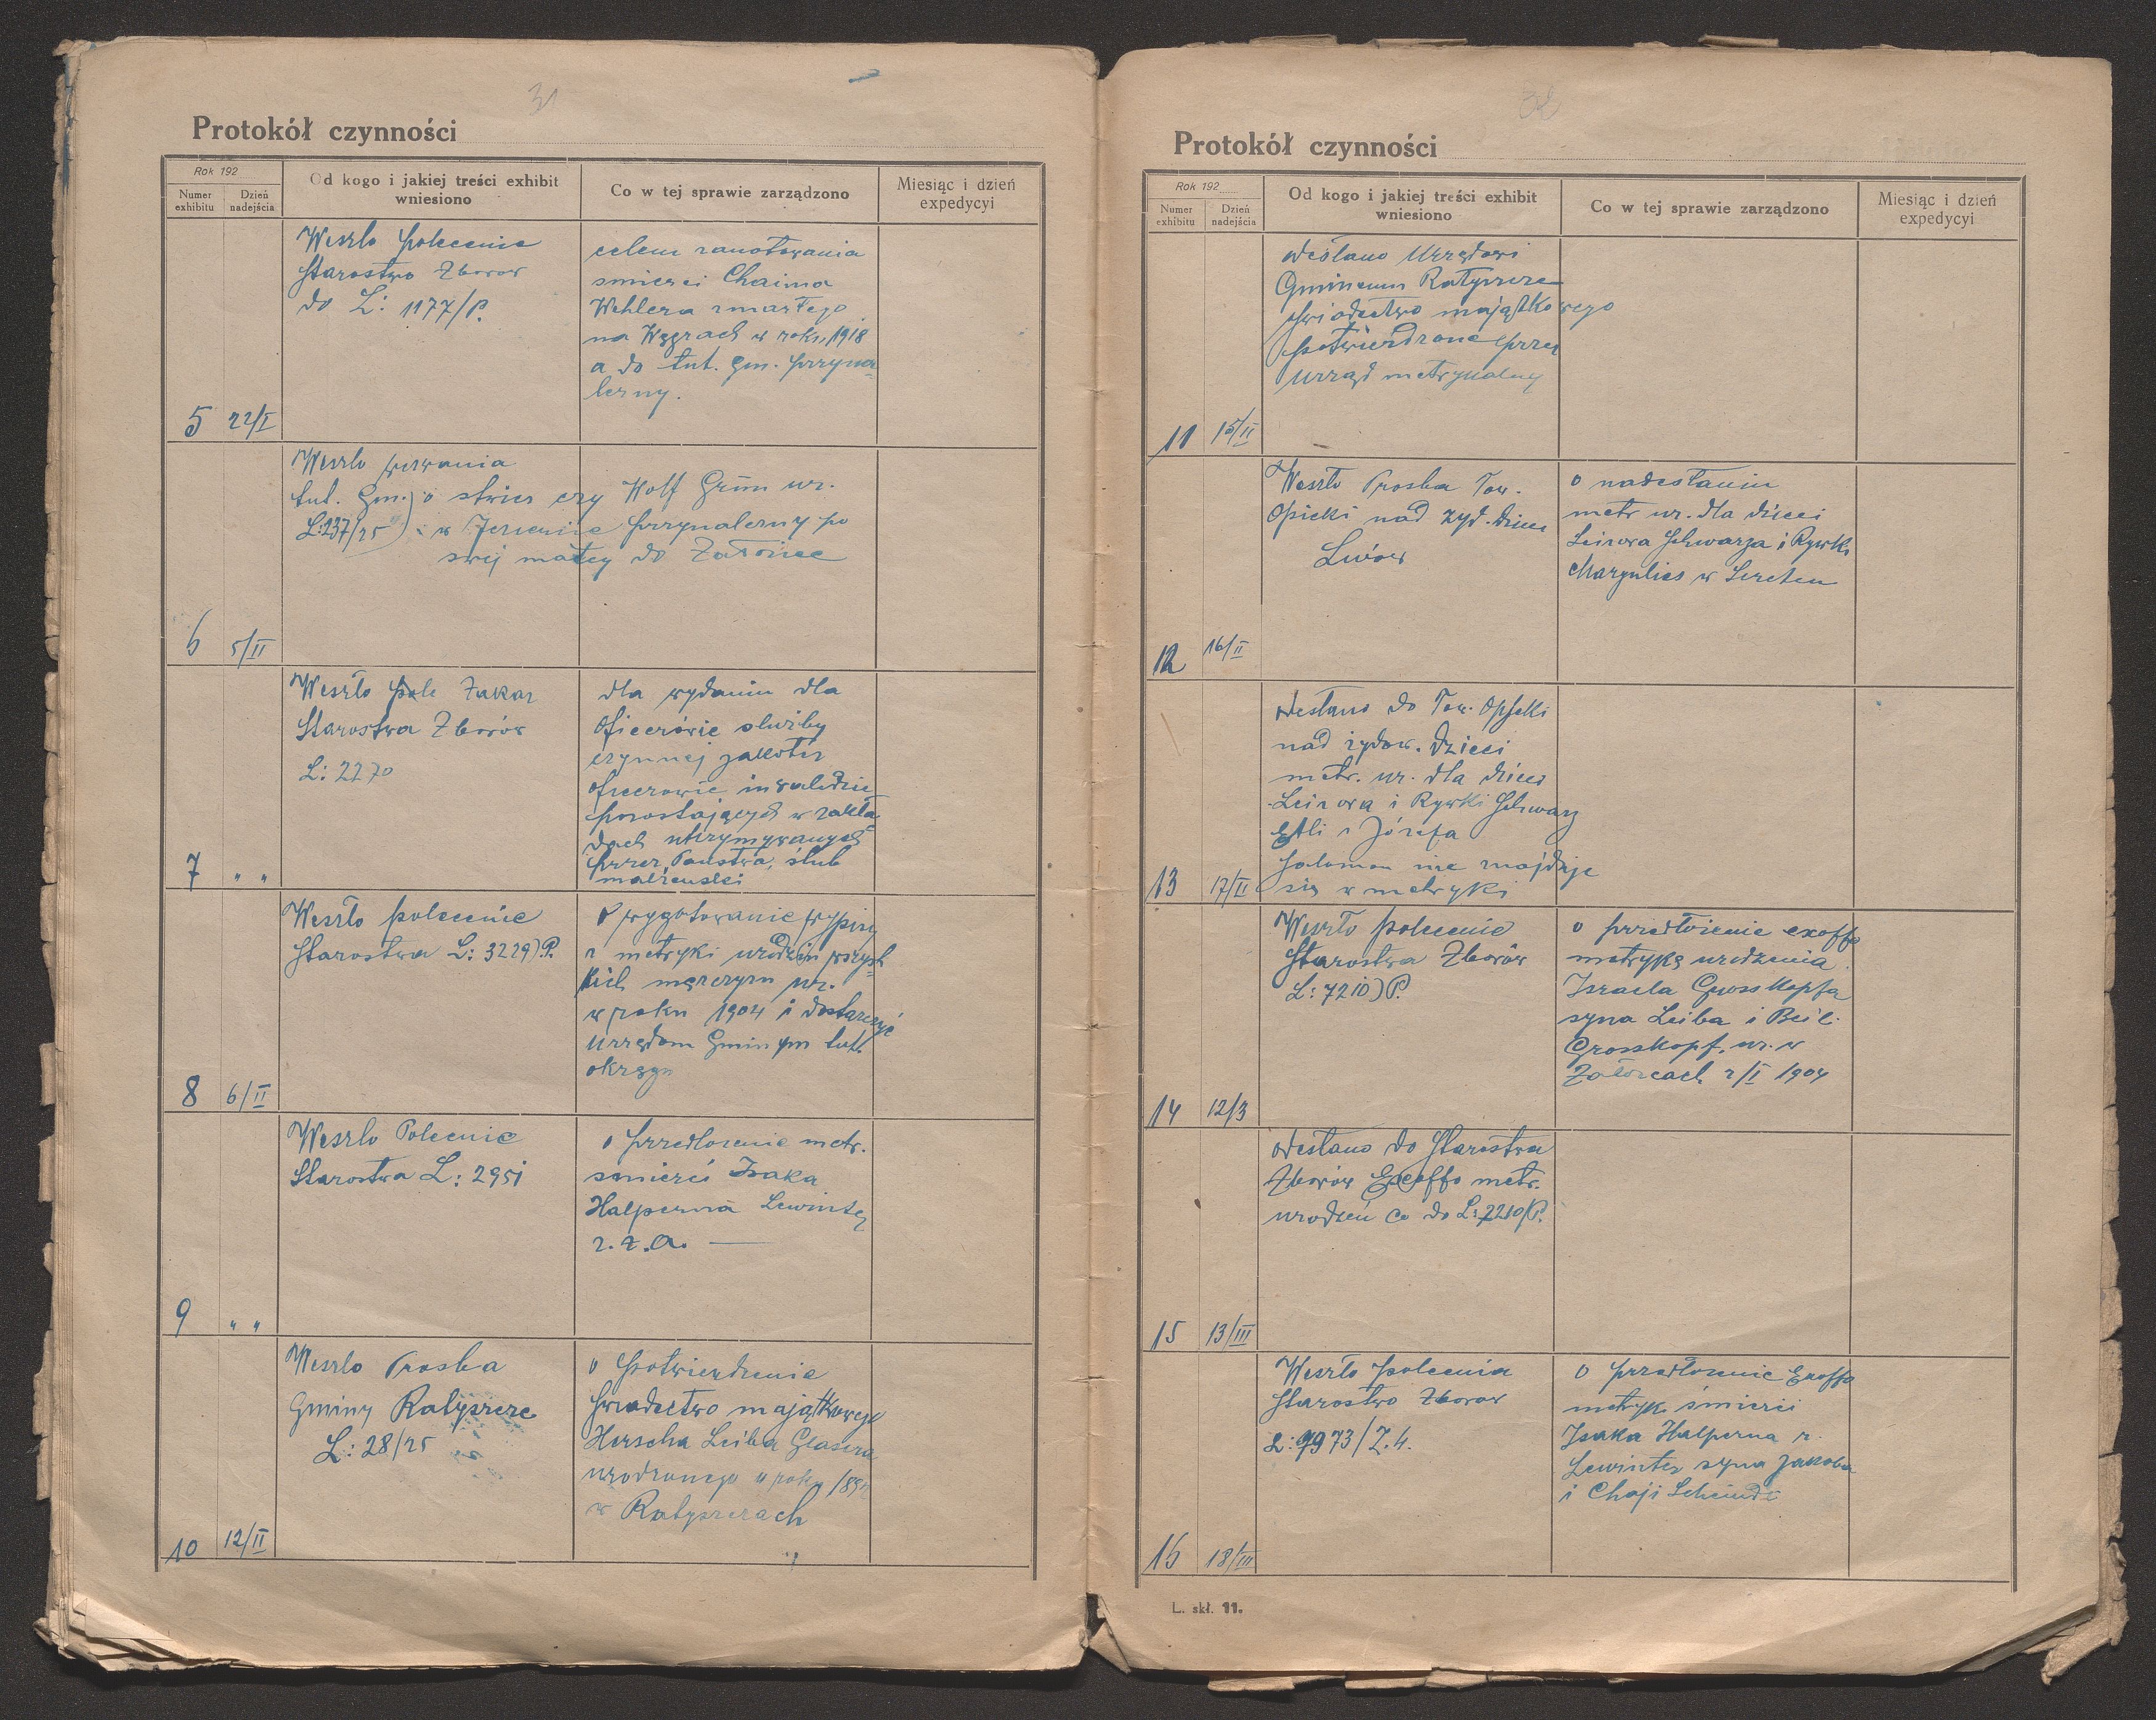 31
Protokół czynności
Rok 192
Numer exhibitu
Dzień nadejścia
Od kogo i jakiej treści exhibit wniesiono
Co w tej sprawie zarządzono
Miesiąc i dzień expedycyi
5
22/I
Weszło polecenie
Starostwo Zborow
do L: 1177/P.
celem zanotowania
smierci Chaima
Wehlera zmarłego
na Węgrach w roku 1918
a do tut. gm. przyna=
lezny.
6
5/II
Weszlo wezwania
tut. Gm.) o stwier czy Wolf Grün ur.
L:237/25) w Jeziernie przynalezny po
swej matcy do Załoziec
7
" "
Weszło pole Zakaz
Starostwa Zborów
L: 2270
dla wydaniu dla
Oficerówie służby
czynnej jakoteż
oficerowie inwalidzie
pozostających w zakła=
dach utrzymywanych
przez Panstwa, ślub
malżeuski
8
6/II
Weszło polecenie
Starostwa L: 3229).P.
o wygotowanie wypisu
z metryki urodzin wszyst=
kich męzczyzn ur.
w roku 1904 i dostarczyć
Urzędom Gminym tut.
okręgu
9
" "
Weszlo Polecenie
Starostwa L: 2951
o przedlozenie metr.
smierci Isaka
Halperna Lewinter
z. z. a.
10
12/II
Weszlo Prosba
Gminy Ratyszcze
L: 28/25
o potwierdzenie
swiadectwo majątkowego
Herscha Leiba Glasera
urodzonego w roku
w Ratyszczach
Protokół czynności
Rok 192
Numer exhibitu
Dzień nadejścia
Od kogo i jakiej treści exhibit wniesiono
Co w tej sprawie zarządzono
Miesiąc i dzień expedycyi
11
15/II
odesłano Urzędowi
Gminemu Ratyszcze
swiadectwo majątkowego
potwierdzone przez
urząd metrykalny
12
16/II
Weszło Prosba Tow.
Opieki nad zyd. dzieci
Lwów
o nadesłaniu
metr ur. dla dzieci
Leizora Schwarza i Rywki
Margulies w Seretem
13
17/II
odesłano do Tow. Opieki
nad zydow. dzieci
metr. ur. dla dzieci
Leizora i Rywki Schwarz
Etli i Józefa
Salomon nie znajduje
się w metryki
14
12/3
Weszło polecenie
Starostwa Zborów
L: 7210)P.
o przedłożenie exoffo
metrykę urodzenia
Israela Grosskopfa
syna Leiba i Beil.
Grosskopf, ur. w
Załozcach 2/I 1904
15
13/III
odesłano do Starostwa
Zborów Exoffo metr.
urodzeń co do L: 7210/P.
16
18/III
Weszło polecenia
Starostwo Zborow
L: 7973/Z.4.
o przedłozenie Exoffo
metryk. śmierci
Isaka Halperna z.
Lewinter syna Jakoba
i Chaji Scheindl
L. skł. 11.